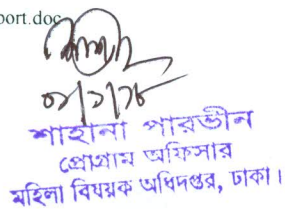 port.doc
শাহানা পারভীন
প্রোগ্রাম অফিসার
মহিলা বিষয়ক অধিদপ্তর, ঢাকা।